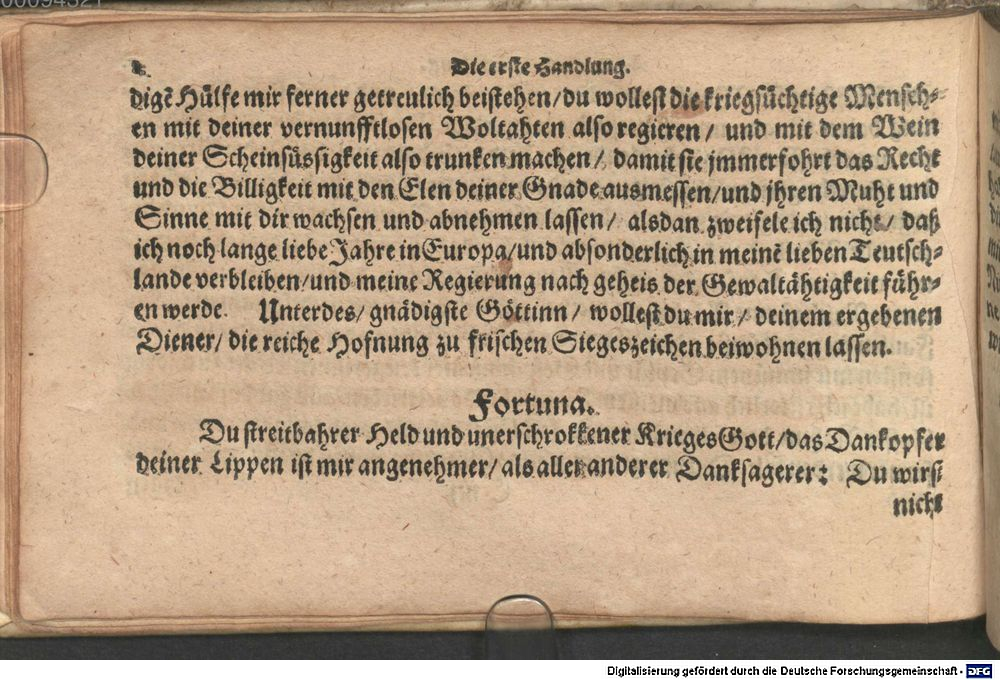 00094321
Die erste Handlung.
digẽ Hülfe mir ferner getreulich beistehen/du wollest die kriegsüchtige Mensch-
en mit deiner vernunfftlosen Woltahten also regieren/ und mit dem Wein
deiner Scheinsüssigkeit also trunken machen/ damit sie jmmerfohrt das Recht
und die Billigkeit mit den Elen deiner Gnade ausmessen/und jhren Muht und
Sinne mit dir wachsen und abnehmen lassen/ alsdan zweifele ich nicht/ daß
ich noch lange liebe Jahre in Europa/und absonderlich in meinẽ lieben Teutsch-
lande verbleiben/und meine Regierung nach geheis der Gewaltähtigkeit führ-
en werde. Unterdes/ gnädigste Göttinn/ wollest du mir/ deinem ergebenen
Diener/ die reiche Hofnung zu frischen Siegeszeichen beiwohnen lassen.
Fortuna.
Du streitbahrer Held und unerschrokkener Krieges Gott/das Dankopfer
deiner Lippen ist mir angenehmer/ als aller anderer Danksagerer: Du wirst
nicht
Digitalisierung gefördert durch die Deutsche Forschungsgemeinschaft - DFG